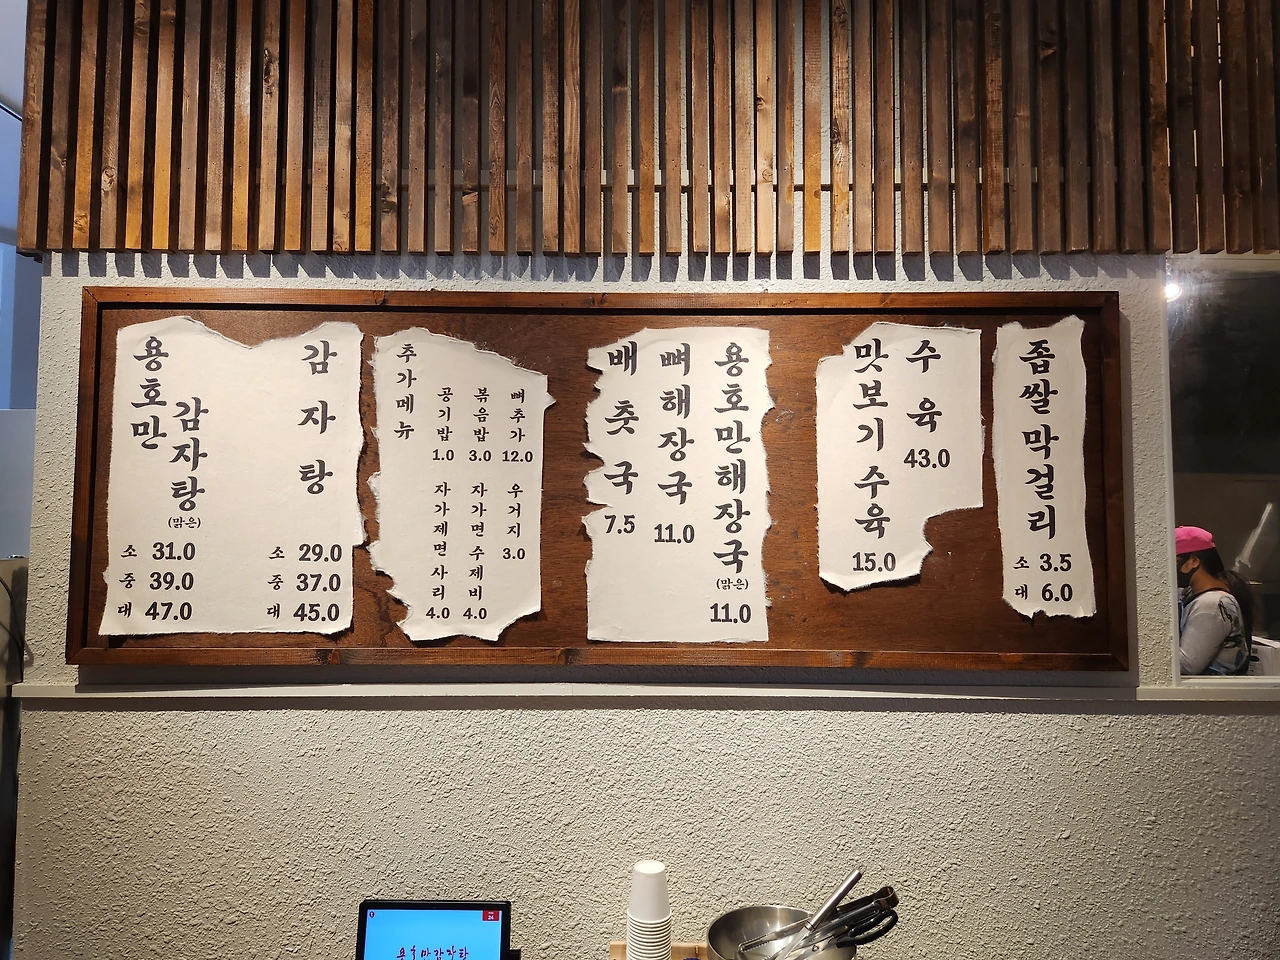 용호만
감자탕
(맑은)
소 31.0
중 39.0
대 47.0
감자탕
소 29.0
중 37.0
대 45.0
추가메뉴
공기밥
1.0
볶음밥
3.0
뼈추가
12.0
자가제면사리
4.0
자가면수제비
4.0
우거지
3.0
배춧국
7.5
뼈해장국
11.0
용호만해장국
(맑은)
11.0
맛보기수육
15.0
수육
43.0
좁쌀막걸리
소 3.5
대 6.0
용호만감자탕